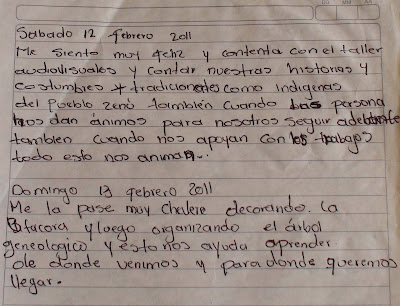 Sabado 12 febrero 2011
Me siento muy feliz y contenta con el taller
audovisuales y contar nuestras historias y
costumbres y tradicionales como indigenas
del Pueblo zenú también cuando las persona
nos dan ánimos para nosotros seguir adelante
tambien cuando nos apoyan con los trabajos
todo esto nos anima...
Domingo 13 febrero 2011
Me la pase muy chalere decorando. la
Bitacora y luego organizando el árbol
geneologico y esto nos ayuda aprender
de donde venimos y para donde queremos
llegar.